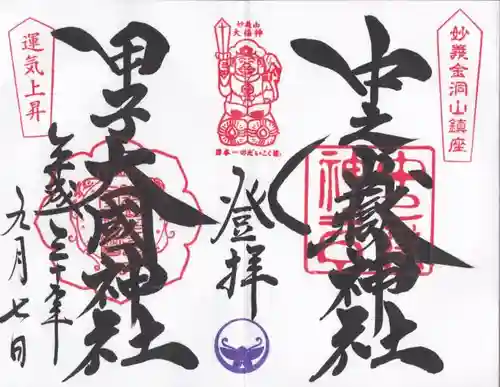 妙義金洞山鎮座
中之嶽神社
登拝
妙義山
大福神
日本一のだいこく様
甲子大國神社
運気上昇
平成三十年
九月七日